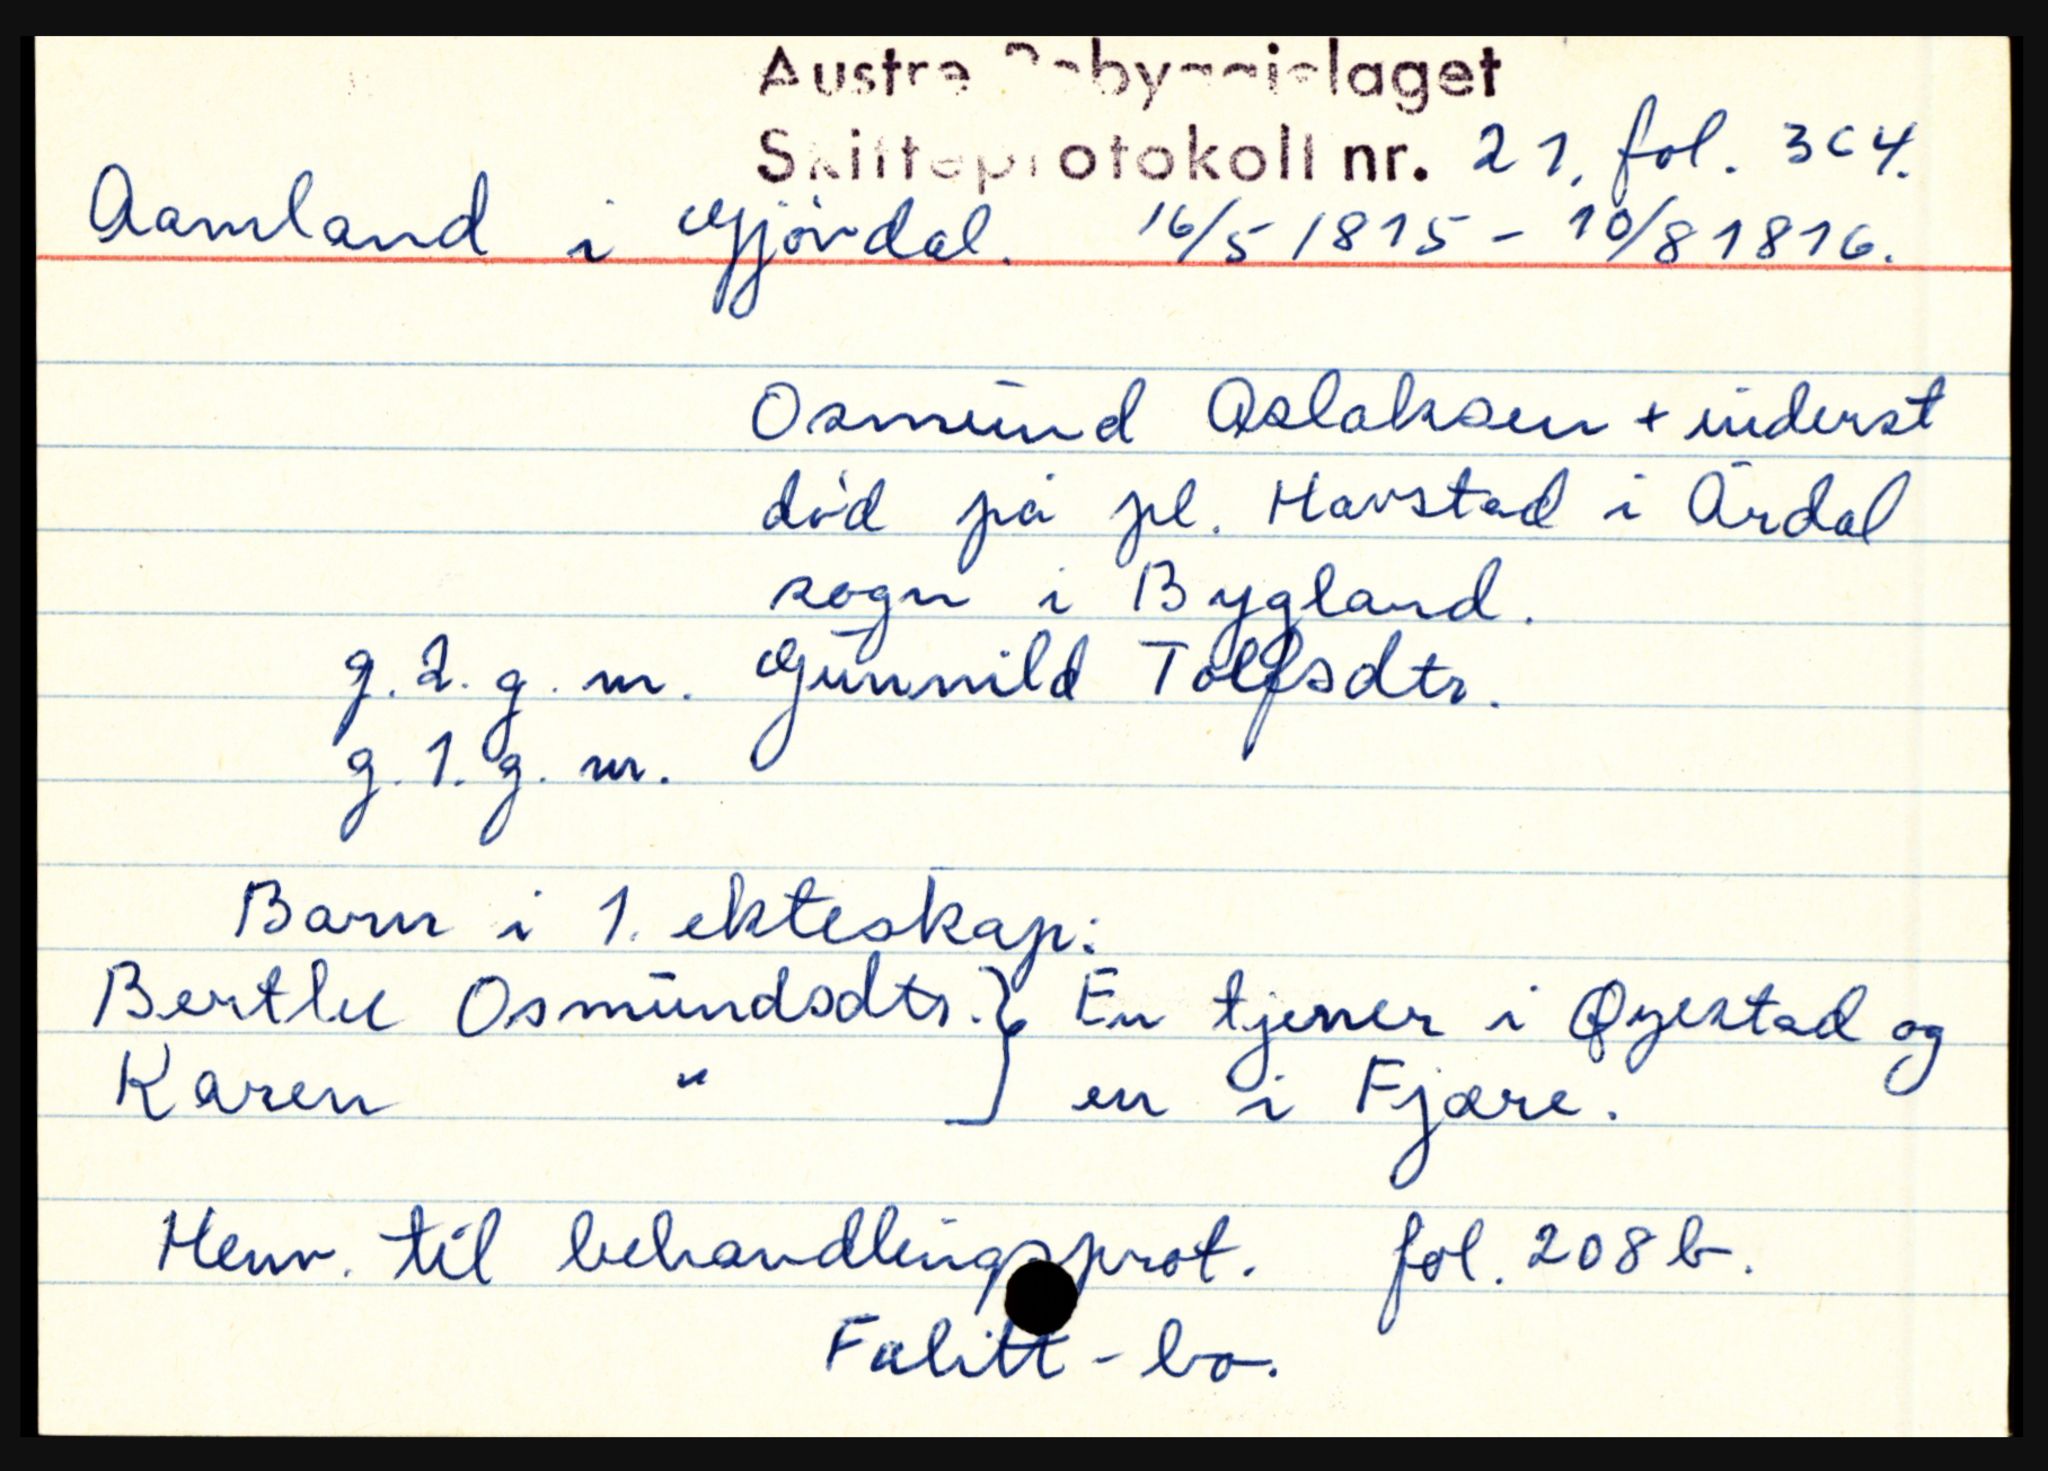 Austre Robyggjelaget
Skifteprotokoll nr. 21, fol. 364.
Aamland i Gjövdal. 16/5 1815 - 10/8 1816.
Osmund Aslaksen + inderst
død på pl. Havstad i Årdal
sogn i Bygland.
g. 2. g. m. Gunnild Tolfsdtr.
g. 1. g. m.
Barn i 1. ekteskap:
Berthe Osmundsdtr. } En tjener i Øyestad og
Karen " } en i Fjære.
Henv. til behandlingsprot. fol. 208 b.
Falitt-bo.